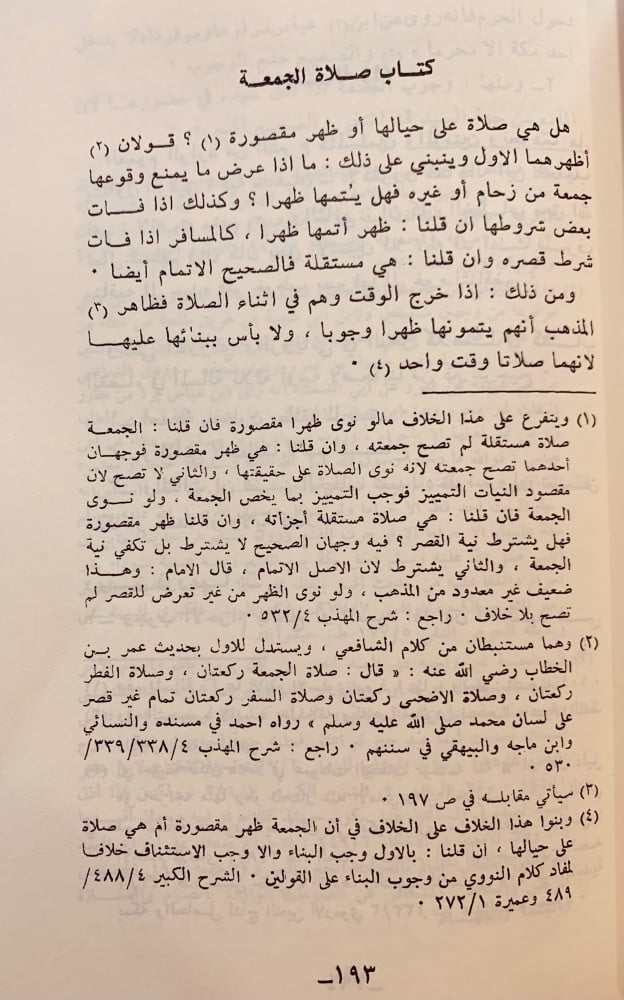 كتاب صلاة الجمعة
هل هي صلاة على حيالها أو ظهر مقصورة (١) ؟ قولان (٢)
أظهرهما الاول وينبني على ذلك : ما اذا عرض ما يمنع وقوعها
جمعة من زحام أو غيره فهل يُتمها ظهرا ؟ وكذلك اذا فات
بعض شروطها ان قلنا : ظهر أتمها ظهرا ، كالمسافر اذا فات
شرط قصره وان قلنا : هي مستقلة فالصحيح الاتمام أيضا ٠
ومن ذلك : اذا خرج الوقت وهم في اثناء الصلاة فظاهر (٣)
المذهب أنهم يتمونها ظهرا وجوبا ، ولا بأس ببنائها عليها
لانهما صلاتا وقت واحد (٤) ٠
(١) ويتفرع على هذا الخلاف مالو نوى ظهرا مقصورة فان قلنا : الجمعة
صلاة مستقلة لم تصح جمعته ، وان قلنا : هي ظهر مقصورة فوجهان
أحدهما تصح جمعته لانه نوى الصلاة على حقيقتها ، والثاني لا تصح لان
مقصود النيات التمييز فوجب التمييز بما يخص الجمعة ، ولو نوى
الجمعة فان قلنا : هي صلاة مستقلة أجزأته ، وان قلنا ظهر مقصورة
فهل يشترط نية القصر ؟ فيه وجهان الصحيح لا يشترط بل تكفي نية
الجمعة ، والثاني يشترط لان الاصل الاتمام ، قال الامام : وهذا
ضعيف غير معدود من المذهب ، ولو نوى الظهر من غير تعرض للقصر لم
تصح بلا خلاف ٠ راجع : شرح المهذب ٥٣٢/٤ ٠
(٢) وهما مستنبطان من كلام الشافعي ، ويستدل للاول بحديث عمر بن
الخطاب رضي الله عنه : « قال : صلاة الجمعة ركعتان ، وصلاة الفطر
ركعتان ، وصلاة الاضحى ركعتان وصلاة السفر ركعتان تمام غير قصر
على لسان محمد صلى الله عليه وسلم » رواه احمد في مسنده والنسائي
وابن ماجه والبيهقي في سننهم ٠ راجع : شرح المهذب ٣٣٩/٣٣٨/٤/
٥٣٠ ٠
(٣) سيأتي مقابله في ص ١٩٧ ٠
(٤) وبنوا هذا الخلاف على الخلاف في أن الجمعة ظهر مقصورة أم هي صلاة
على حيالها ، ان قلنا : بالاول وجب البناء والا وجب الاستئناف خلافا
لمفاد كلام النووي من وجوب البناء على القولين ٠ الشرح الكبير ٤٨٨/٤/
٤٨٩ وعميرة ٢٧٢/١ ٠
ـ١٩٣ـ